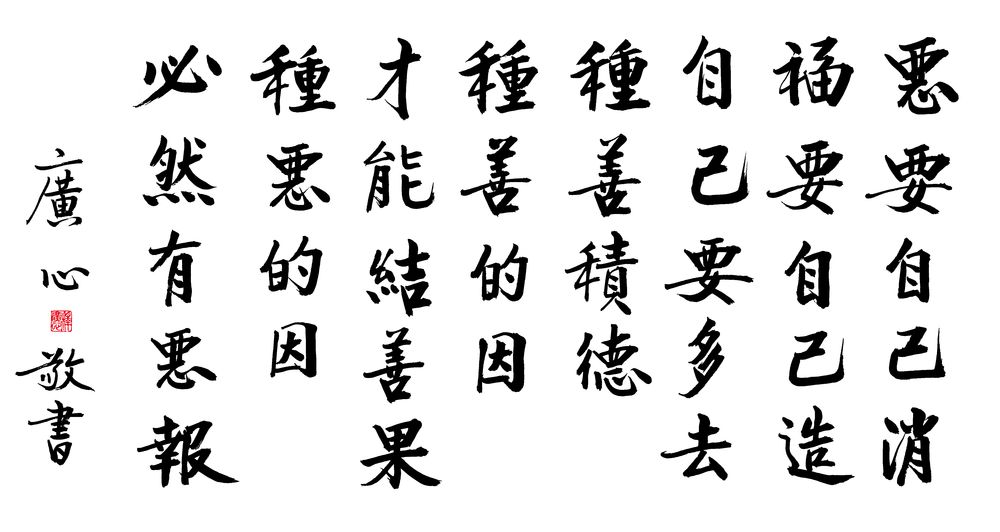 悪要自己消
福要自己造
自己要多去
種善積德
種善的因
才能結善果
種悪的因
必然有悪報
廣心敬書